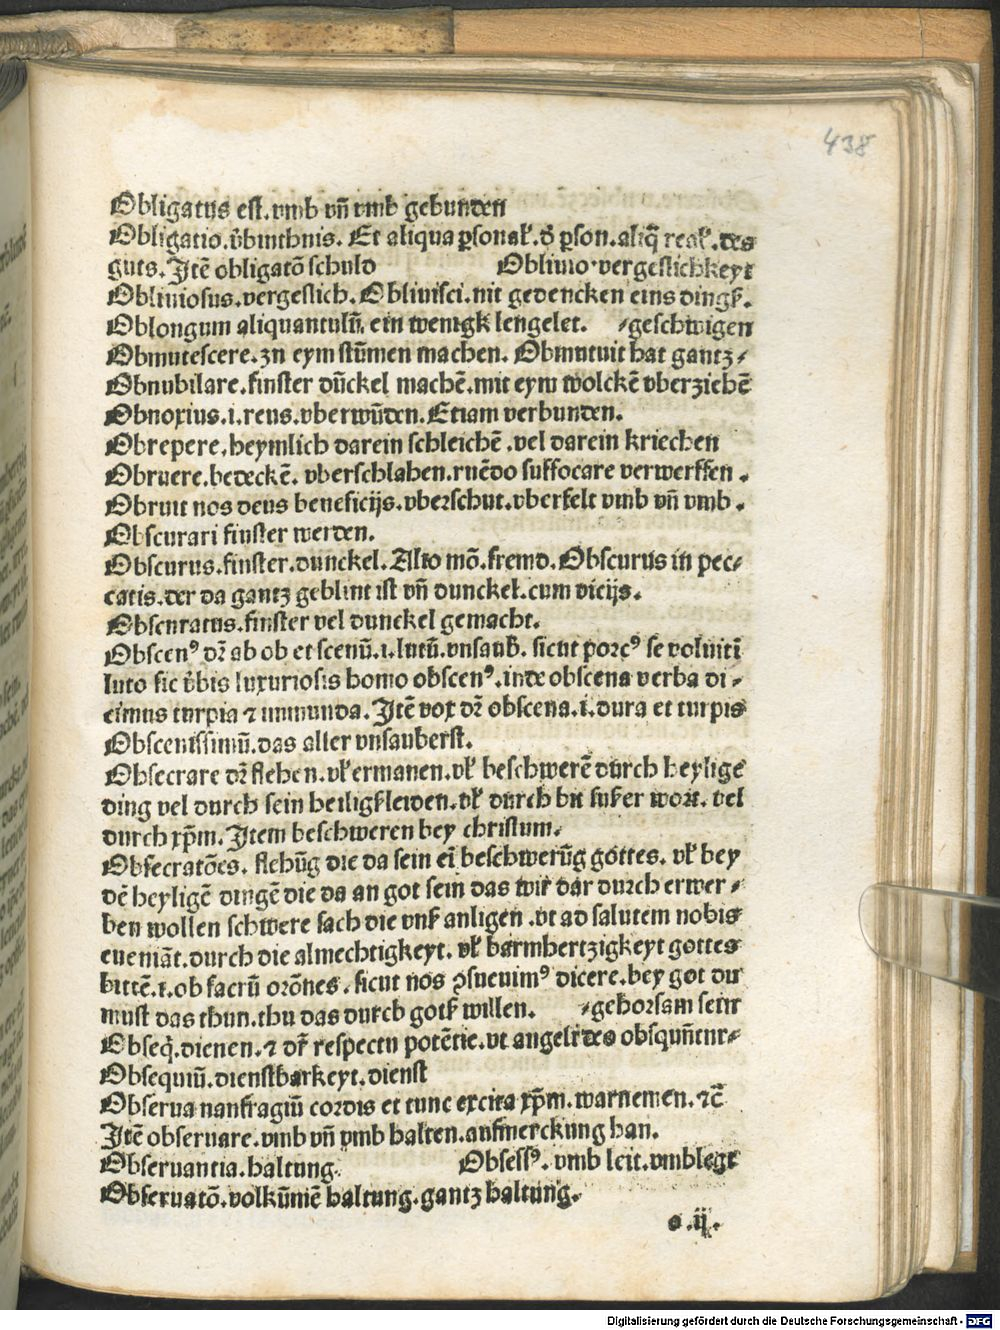 438
Obligatus est. vmb vñ vmb gebunden
Obligatio. v̄bintknis. Et aliqua ꝑsonal'. ð ꝑson. aliq̄ real'. des
guts. Itē obligatō schuld Obliuio. vergeslichkeyt
Obliuiosus. vergeslich. Obliuisci. nit gedencken eins dingſ.
Oblongum aliquantulū. ein wenigk lengelet. ⸗geschwigen
Obmutescere. zu eym stūmen machen. Obmutuit hat gantz⸗
Obnubilare. finster dūckel machē. mit eym wolckē vberziehē
Obnoxius. i. reus. vberwūden. Etiam verbunden.
Obrepere. heymlich darein schleichē. vel darein kriechen
Obruere. bedeckē. vberschlahen. ruēdo suffocare verwerffen.
Obruit nos deus beneficijs. vberschut. vberfelt vmb vñ vmb.
Obscurari finster werden.
Obscurus. finster. dunckel. Alio mō. fremd. Obscurus in pec⸗
catis. der da gantz geblint ist vñ dunckel. cum vicijs.
Obscuratus. finster vel dunckel gemacht.
Obscenꝰ dr̄ ab ob et scenū. i. lutū. vnsaub̄. sicut porcꝰ se voluit ī
luto sic v̄bis luxuriosis homo obscenꝰ. inde obscena verba di⸗
cimus turpia ⁊ immunda. Itē vox dr̄ obscena. i. dura et turpis
Obscenissimū. das aller vnsauberst.
Obsecrare dr̄ flehen. vl' ermanen. vl' beschwerē durch heylige
ding vel durch sein heiligſ leiden. vl' durch bit suſer wort. vel
durch xp̄m. Item beschweren bey christum.
Obsecratōes. flehūg die da sein eī beschwerūg gottes. vl' bey
dē heyligē dingē die da an got sein das wir dar durch erwer⸗
ben wollen schwere sach die vnſ anligen. vt ad salutem nobis
eueniāt. durch die almechtigkeyt. vl' barmhertzigkeyt gottes
bittē. i. ob sacrū orōnes. sicut nos ꝯsueuimꝰ dicere. bey got du
must das thun. thu das durch gotſ willen. ⸗gehorsam sein
Obseq̄. dienen. ⁊ dr̄ respectu potētie. vt angeli des obsequūtur⸗
Obsequiū. dienstbarkeyt. dienst
Obserua naufragiū cordis et tunc excita xp̄m. warnemen. ⁊c̄
Itē obseruare. vmb vñ vmb halten. aufmerckung han.
Obseruantia. haltung. Obsessꝰ. vmb leit. vmblegt
Obseruatō. volkūmē haltung. gantz haltung.
o. ij.
Digitalisierung gefördert durch die Deutsche Forschungsgemeinschaft - DFG